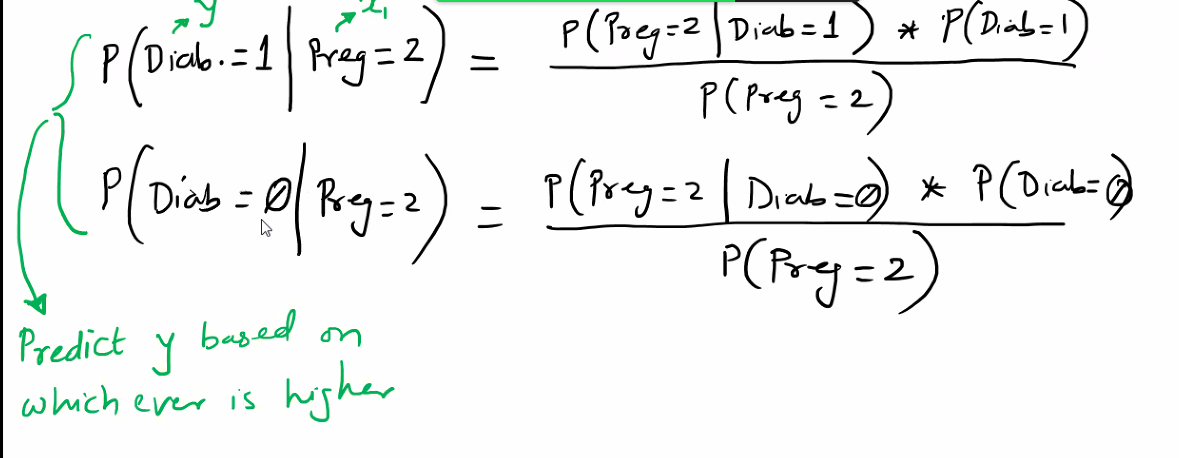 y x₁
P(Diab.=1 | Preg=2) = P(Preg=2 | Diab=1) * P(Diab=1)
P(Preg=2)
P(Diab=0 | Preg=2) = P(Preg=2 | Diab=0) * P(Diab=0)
P(Preg=2)
Predict y based on
which ever is higher